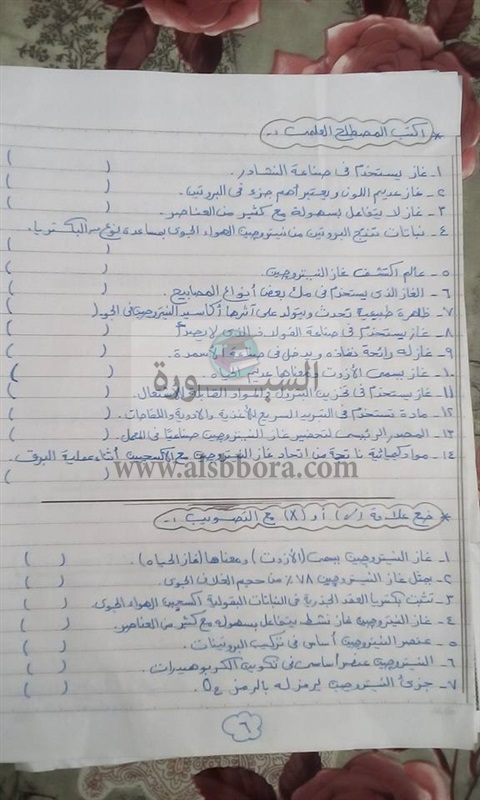 * اكتب المصطلح العلمى :-
١- غاز يستخدم فى صناعة النشادر. ( )
٢- غاز عديم اللون ويعتبر أهم جزء فى البروتين. ( )
٣- غاز لا يتفاعل بسهولة مع كثير من العناصر. ( )
٤- نباتات تنتج البروتين من نيتروجين الهواء الجوى بمساعدة نوع من البكتريا.
( )
٥- عالم اكتشف غاز النيتروجين. ( )
٦- الغاز الذى يستخدم فى ملء بعض أنواع المصابيح. ( )
٧- ظاهرة طبيعية تحدث ويتولد على أثرها أكاسيد النيتروجين فى الجو( )
٨- غاز يستخدم فى صناعة الفولاذ الذى لا يصدأ ( )
٩- غاز له رائحة نفاذه ويدخل فى صناعة الأسمدة. ( )
١٠- غاز يسمى الأزوت ومعناها عديم ( )
١١- غاز يستخدم فى تخزين البترول والمواد القابلة للاشتعال. ( )
١٢- مادة تستخدم فى التبريد السريع للأغذية والأدوية واللقاحات. ( )
١٣- المصدر الرئيسى لتحضير غاز النيتروجين صناعيًا فى المعمل. ( )
١٤- مواد كيميائية ناتجة من اتحاد غاز النيتروجين مع الأكسجين أثناء عملية البرق.
( )
السبورة
www.alsbbora.com
* ضع علامة (✓) أو (X) مع التصويب :-
١- غاز النيتروجين يسمى (الأزوت) ومعناها (غاز الحياه). ( )
٢- يمثل غاز النيتروجين ٧٨٪ من حجم الغلاف الجوى. ( )
٣- تثبت بكتريا العقد الجذرية فى النباتات البقولية أكسجين الهواء الجوى. ( )
٤- غاز النيتروجين غاز نشط يتفاعل بسهوله مع كثير من العناصر. ( )
٥- عنصر النيتروجين أساسى فى تركيب البروتينات. ( )
٦- النيتروجين عنصر أساسى فى تكوين الكربوهيدرات. ( )
٧- جزئ النيتروجين يرمز له بالرمز O₂ ( )
٦